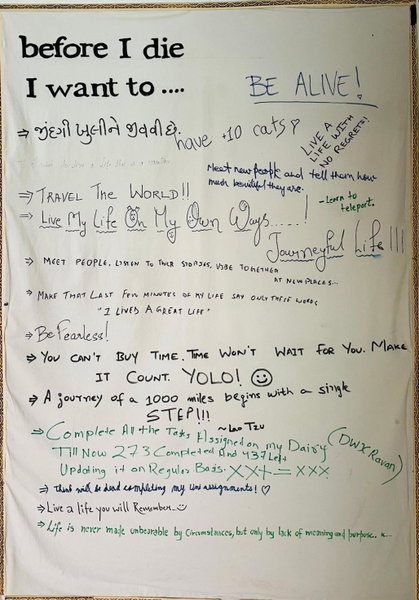 before I die
I want to ....
BE ALIVE!
⇒ જીંદગી ખુલીને જીવવી છે.
have +10 cats
LIVE A
LIFE WITH
NO REGRETS!
Meet new people and tell them how
much beautiful they are.
- Learn to
teleport.
⇒ TRAVEL THE WORLD!!
⇒ Live My Life On My Own Ways.....!
Journeyful Life!!!
⇒ MEET PEOPLE, LISTEN TO THEIR STORIES, VIBE TOGETHER
AT NEW PLACES...
⇒ MAKE THAT LAST FEW MINUTES OF MY LIFE SAY ONLY THESE WORDS
"I LIVED A GREAT LIFE"
⇒ Be Fearless!
⇒ YOU CAN'T BUY TIME. TIME WON'T WAIT FOR YOU. MAKE
IT COUNT. YOLO! ☺
⇒ A journey of a 1000 miles begins with a single
STEP!!!
~ Lao Tzu
⇒ Complete All the Tasks Assigned on my Dairy
Till Now 273 Completed And 437 Left
(DWX Ravan)
Updating it on Regular Basis. XX+=XXX
⇒ Think will be dead completing my uni assignments! ♡
⇒ Live a life you will Remember...
⇒ Life is never made unbearable by Circumstances, but only by lack of meaning and purpose.